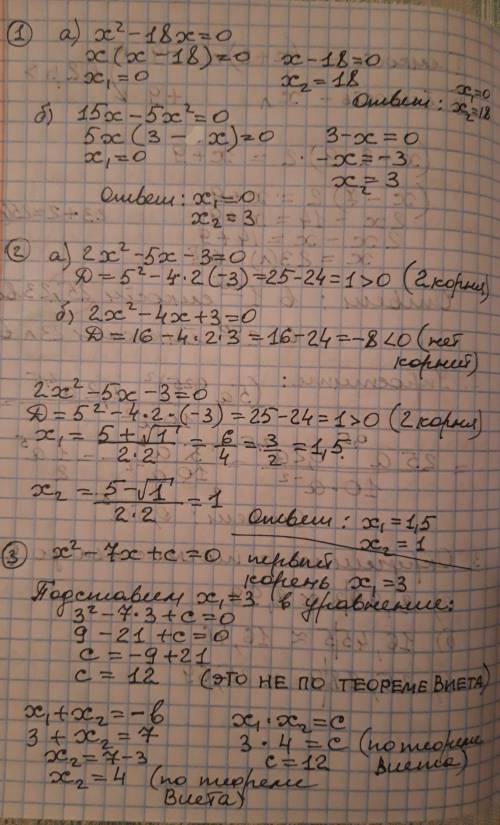 ① а) x² - 18x = 0
x(x - 18) = 0    x - 18 = 0
x₁ = 0    x₂ = 18
Ответ: x₁ = 0
x₂ = 18
б) 15x - 5x² = 0
5x(3 - x) = 0    3 - x = 0
x₁ = 0    -x = -3
x₂ = 3
Ответ: x₁ = 0
x₂ = 3
② а) 2x² - 5x - 3 = 0
D = 5² - 4·2(-3) = 25 - 24 = 1 > 0 (2 корня)
б) 2x² - 4x + 3 = 0
D = 16 - 4·2·3 = 16 - 24 = -8 < 0 (нет
корний)
2x² - 5x - 3 = 0
D = 5² - 4·2·(-3) = 25 - 24 = 1 > 0 (2 корня)
x₁ = (5 + √1)/(2·2) = 6/4 = 3/2 = 1,5
x₂ = (5 - √1)/(2·2) = 1
Ответ: x₁ = 1,5
x₂ = 1
③ x² - 7x + c = 0    первый
корень x₁ = 3
Подставим x₁ = 3 в уравнение:
3² - 7·3 + c = 0
9 - 21 + c = 0
c = -9 + 21
c = 12    (ЭТО НЕ ПО ТЕОРЕМЕ ВИЕТА)
x₁ + x₂ = -в    x₁·x₂ = c
3 + x₂ = 7    3·4 = c (по теореме
Виета)
x₂ = 7 - 3    c = 12
x₂ = 4 (по теореме
Виета)